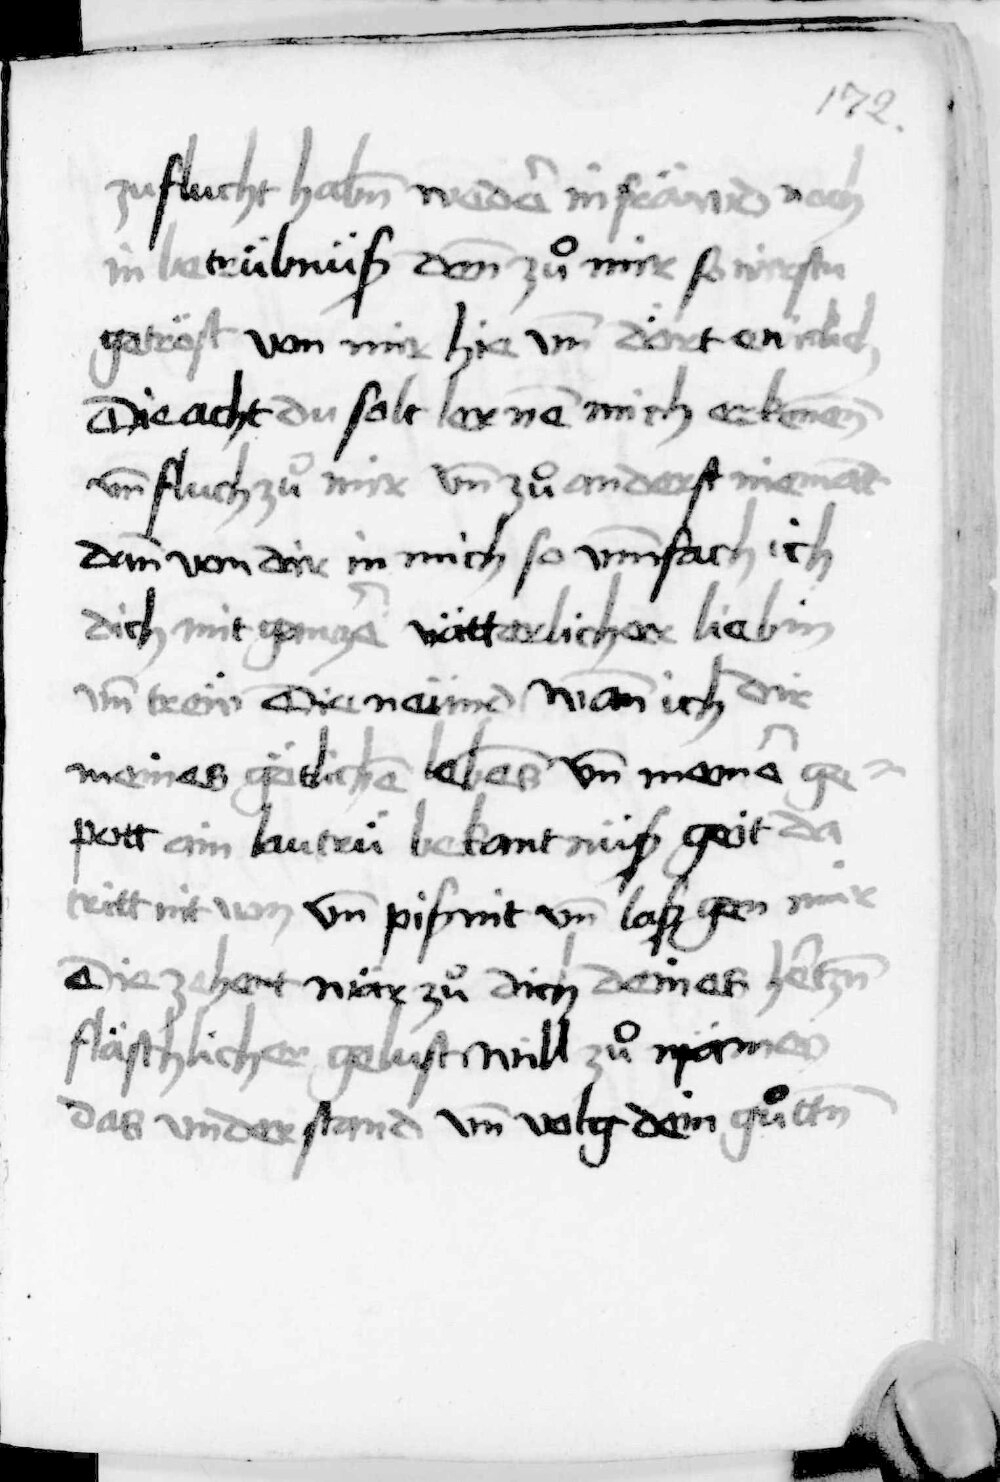 172.
zuflucht habn̄ wede᷑ in fräwd noch
in betrübnüß den̄ zů mir so wirstu
getröst von mir hie vn̄ dört ewiclich
Die acht du solt lernē mich erkenen̄
vn̄ fluch zů mir vn̄ zů anderst niemāt
dan̄ von dir in mich so vmfach ich
dich mit gantze᷑ vätterlicher liebin
vn̄ trew Die neünd wan̄ ich dir
meines götlichē lebēs vn̄ meine᷑ ge
pott ain lautrü bekantnüß geit da
tritt nit von vn̄ piß nit vn̄ laß gen mir
Die zehent wär zů dich deines hertzn̄
fläschlicher gelust will zů
das vnderstand vn̄ volg dein gůttn̄